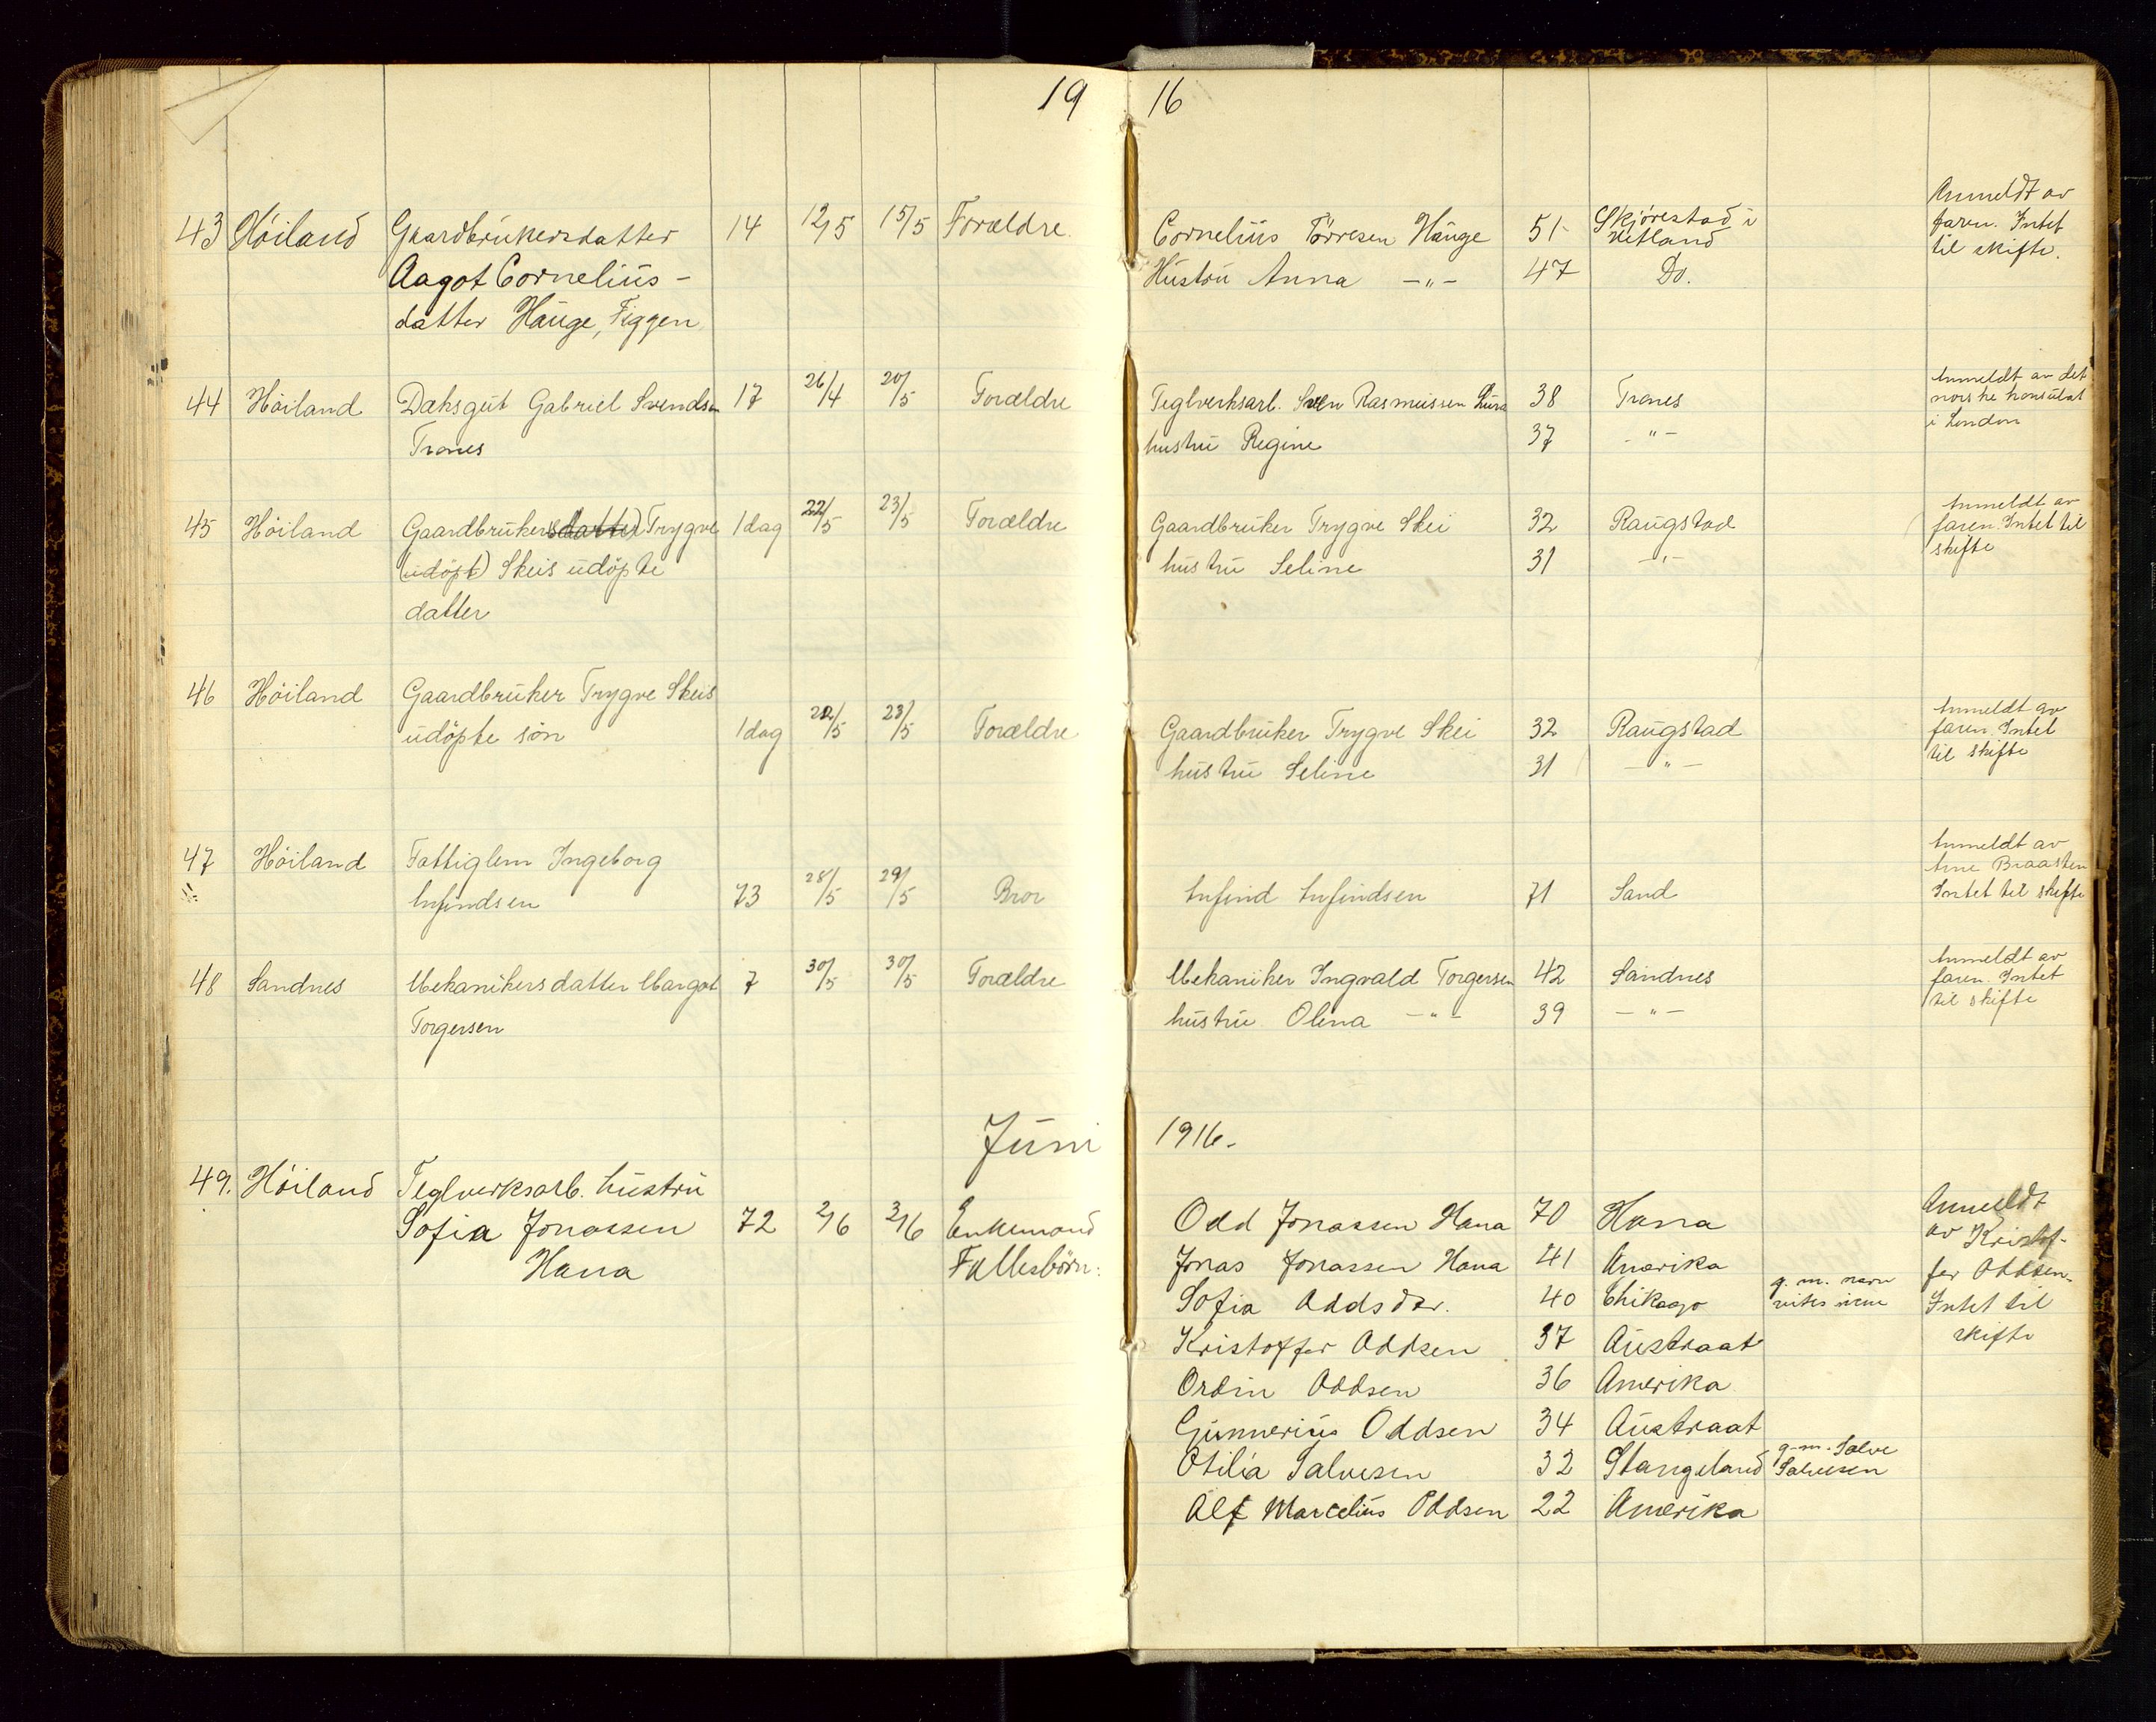 19 16
43 Höiland Gaardbrukersdatter 14 12/5 15/5 Forældre Cornelius Törresen Hauge 51 Skjörestad i Hetland Anmeldt av
Aagot Cornelius- Hustru Anna -"- 47 Do. faren. Intet
datter Hauge, Figgen til skifte.
44 Höiland Dæksgut Gabriel Svendsen 17 26/4 20/5 Forældre Teglverksarb. Sven Rasmussen Lura 38 Trones Anmeldt av det
Trones hustru Regine 37 -"- norske konsulat
i London
45 Höiland Gaardbrukersdatter Trygve 1 dag 22/5 23/5 Forældre Gaardbruker Trygve Skei 32 Raugstad Anmeldt av
(udöpt) Skeis udöpte hustru Seline 31 -"- faren. Intet til
datter skifte
46 Höiland Gaardbruker Trygve Skeis
udöpte sön 1 dag 22/5 23/5 Forældre Gaardbruker Trygve Skei 32 Raugstad Anmeldt av
hustru Seline 31 -"- faren. Intet
til skifte
47 Höiland Fattiglem Ingeborg Anmeldt av
Anfindsen 73 28/5 29/5 Bror Anfind Anfindsen 71 Sand Arne Braasten
Intet til skifte
48 Sandnes Mekanikersdatter Margot 7 30/5 30/5 Forældre Mekaniker Ingvald Torgersen 42 Sandnes Anmeldt av
Torgersen hustru Olena -"- 39 -"- faren. Intet
til skifte
Juni 1916.
49. Höiland Teglverksarb. hustru
Sofia Jonassen 72 2/6 3/6 Enkemand Odd Jonassen Hana 70 Hana Anmeldt
Hana Fællesbörn: Jonas Jonassen Hana 41 Amerika av Kristof-
Sofia Oddsdtr. 40 Chikago g. m. navn vites ikke fer Oddsen.
Kristoffer Oddsen 37 Austraat Intet til
Ordin Oddsen 36 Amerika skifte
Gunnerius Oddsen 34 Austraat
Otilia Salvesen 32 Stangeland g. m. Salve Salvesen
Alf Marcelius Oddsen 22 Amerika